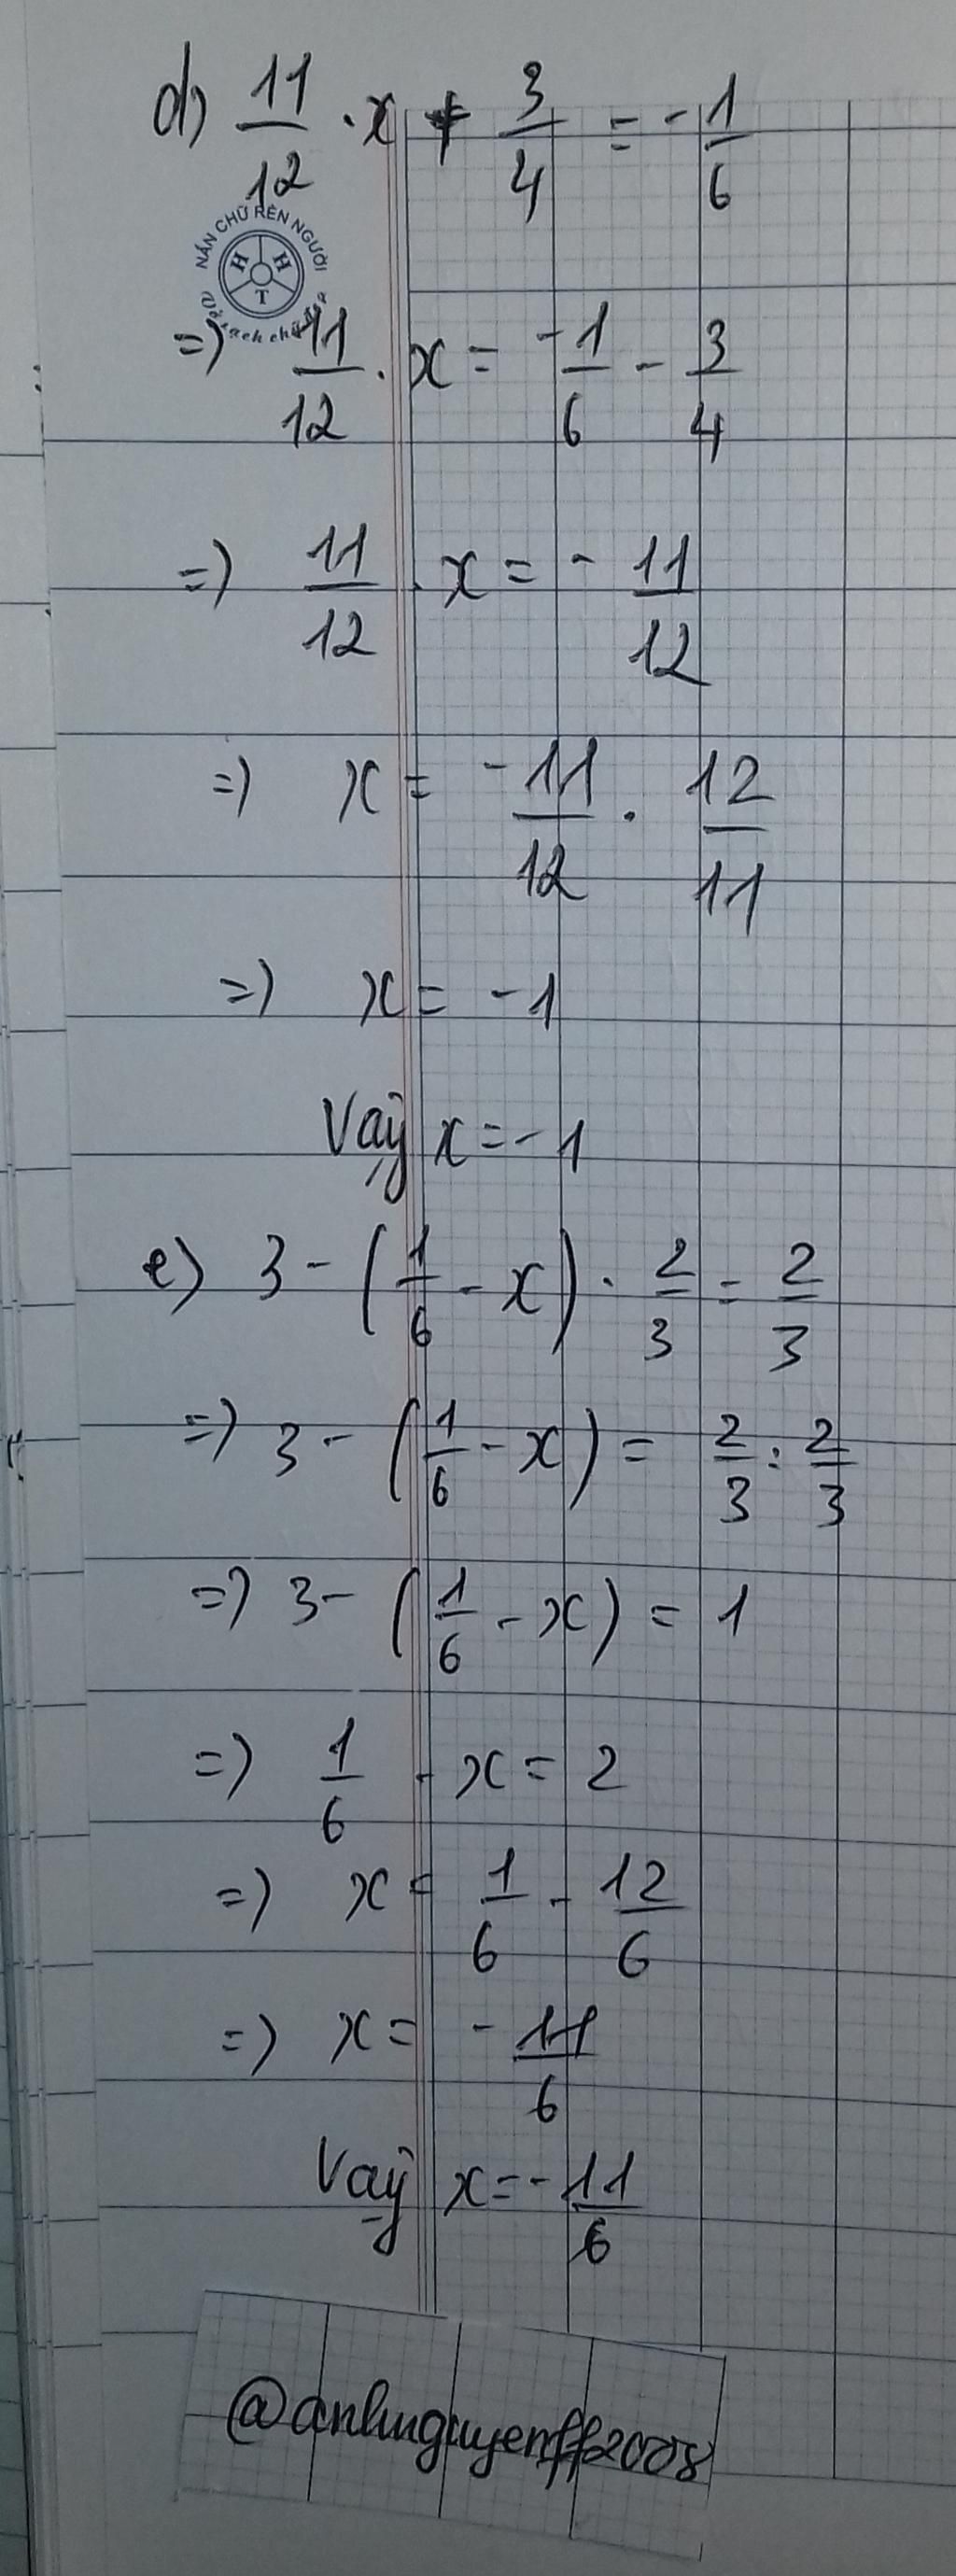 d) 11/12 . x + 3/4 = - 1/6
NẮN CHỮ RÈN NGƯỜI
H H T
=> 11/12 . x = -1/6 - 3/4
=> 11/12 . x = - 11/12
=> x = -11/12 . 12/11
=> x = -1
Vậy x = -1
e) 3 - (1/6 - x) . 2/3 = 2/3
=> 3 - (1/6 - x) = 2/3 : 2/3
=> 3 - (1/6 - x) = 1
=> 1/6 - x = 2
=> x = 1/6 - 12/6
=> x = - 11/6
Vậy x = - 11/6
@anhnguyenff2008